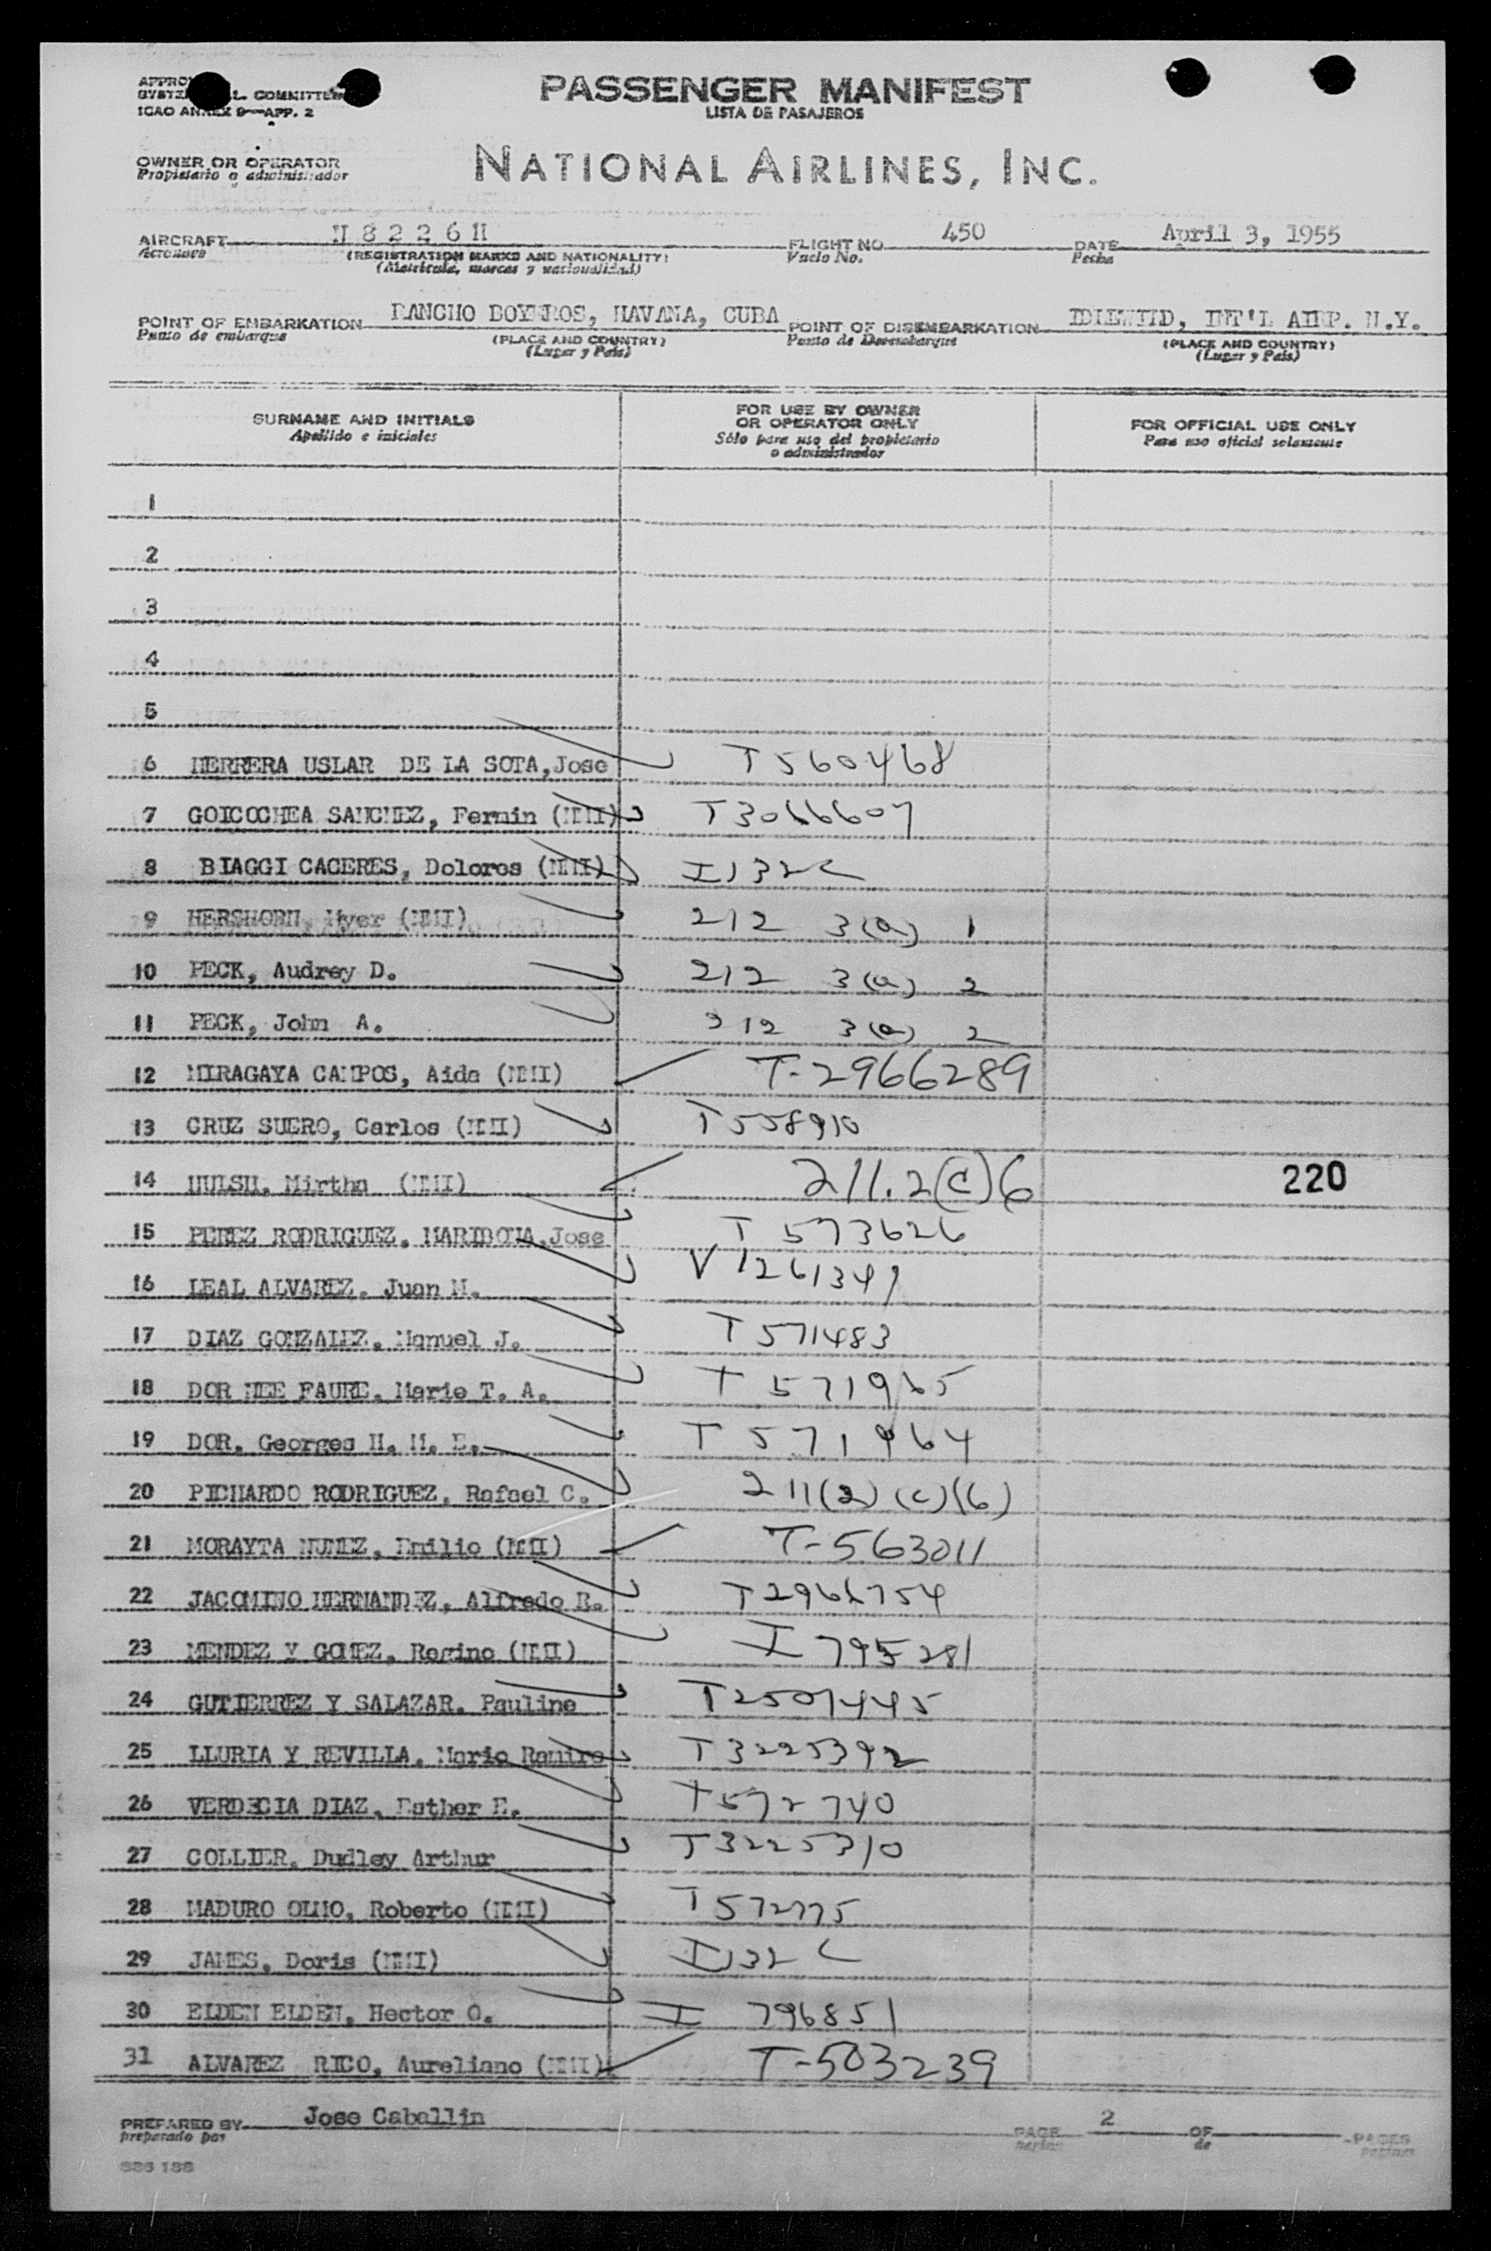 PASSENGER MANIFEST
LISTA DE PASAJEROS
COMMITTEE
ICAO ANNEX 9—APP. 2
OWNER OR OPERATOR
Propietario o administrador
NATIONAL AIRLINES, INC.
AIRCRAFT N 8 2 2 6 H FLIGHT NO. 450 DATE April 3, 1955
Aeronave (REGISTRATION MARKS AND NATIONALITY) Vuelo No. Fecha
(Matricula, marcas y nacionalidad)
POINT OF EMBARKATION RANCHO BOYEROS, HAVANA, CUBA POINT OF DISEMBARKATION IDLEWILD, INT'L AIRP. N.Y.
Punto de embarque (PLACE AND COUNTRY) Punto de Desembarque (PLACE AND COUNTRY)
(Lugar y País) (Lugar y País)
SURNAME AND INITIALS FOR USE BY OWNER OR OPERATOR ONLY FOR OFFICIAL USE ONLY
Apellido e iniciales Sólo para uso del propietario o administrador Para uso oficial solamente
1
2
3
4
5
6 HERRERA USLAR DE LA SOTA, Jose T 560468
7 GOICOCHEA SANCHEZ, Fermin (NMI) T3066607
8 BIAGGI CACERES, Dolores (NMI) I 132 C
9 HERSHORN, Myer (NMI) 212 3(a) 1
10 PECK, Audrey D. 212 3(a) 2
11 PECK, John A. 212 3(a) 2
12 MIRAGAYA CAMPOS, Aida (NMI) T-2966289
13 CRUZ SUERO, Carlos (NMI) T558910
14 Mirtha (NMI) 211.2(c)6 220
15 PEREZ RODRIGUEZ, MARIBONA, Jose T 573626
16 LEAL ALVAREZ, Juan M. V 1261349
17 DIAZ GONZALEZ, Manuel J. T 571483
18 DOR NEE FAURE, Marie T. A. T 571965
19 DOR, Georges H. M. E. T 571964
20 PICHARDO RODRIGUEZ, Rafael C. 211(2)(c)(6)
21 MORAYTA NUNEZ, Emilio (NMI) T-563011
22 JACOMINO HERNANDEZ, Alfredo R. T2966754
23 MENDEZ Y GOMEZ, Regino (NMI) I 795281
24 GUTIERREZ Y SALAZAR, Pauline T2507445
25 LLURIA Y REVILLA, Mario Ramiro T3225392
26 VERDECIA DIAZ, Esther E. T572740
27 COLLIER, Dudley Arthur T3225310
28 MADURO OLMO, Roberto (NMI) T 572775
29 JAMES, Doris (NMI) I 132 C
30 ELDEN ELDEN, Hector O. I 796851
31 ALVAREZ RICO, Aureliano (NMI) T-503239
PREPARED BY Jose Caballin PAGE 2 OF PAGES
preparado por de